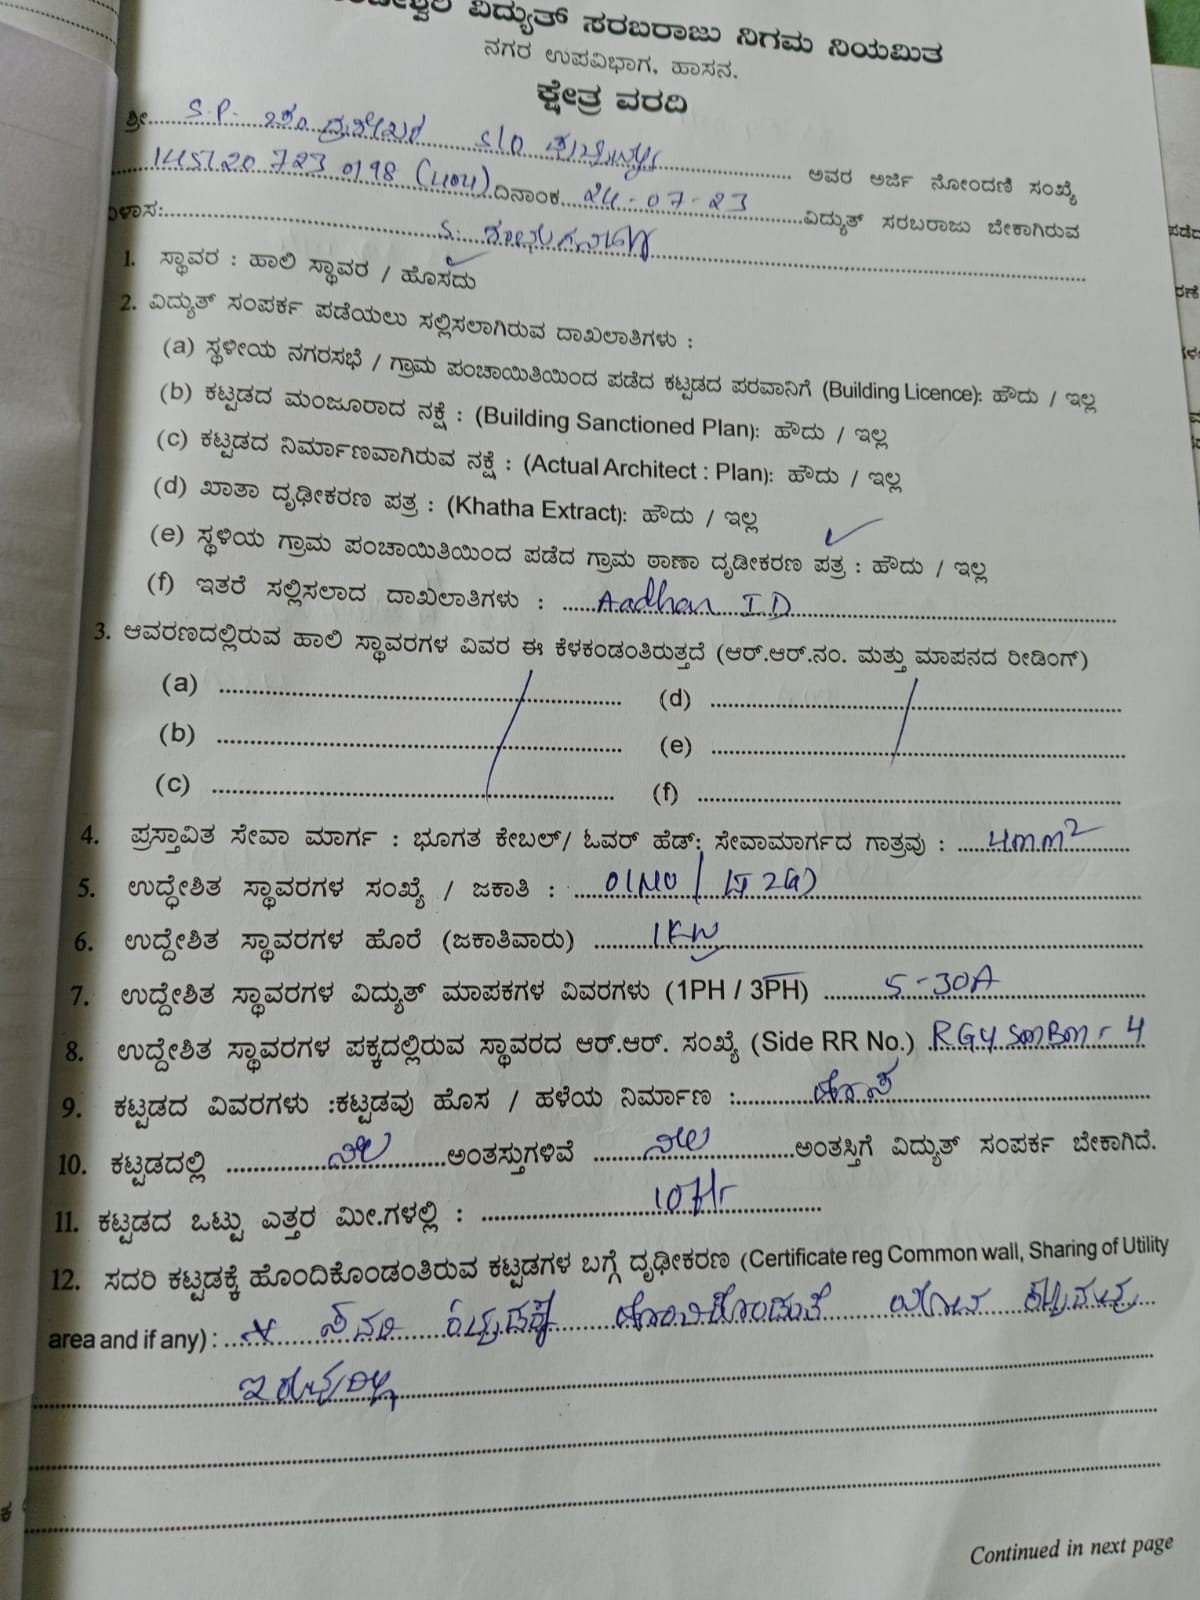 ವಿದ್ಯುತ್ ಸರಬರಾಜು ನಿಗಮ ನಿಯಮಿತ
ನಗರ ಉಪವಿಭಾಗ, ಹಾಸನ.
ಕ್ಷೇತ್ರ ವರದಿ
ಶ್ರೀ S.P. ಚಂದ್ರಶೇಖರ S/O ಅವರ ಅರ್ಜಿ ನೋಂದಣಿ ಸಂಖ್ಯೆ
ದಿನಾಂಕ 24-07-23 ವಿದ್ಯುತ್ ಸರಬರಾಜು ಬೇಕಾಗಿರುವ
1. ಸ್ಥಾವರ : ಹಾಲಿ ಸ್ಥಾವರ / ಹೊಸದು
2. ವಿದ್ಯುತ್ ಸಂಪರ್ಕ ಪಡೆಯಲು ಸಲ್ಲಿಸಲಾಗಿರುವ ದಾಖಲಾತಿಗಳು :
(a) ಸ್ಥಳೀಯ ನಗರಸಭೆ / ಗ್ರಾಮ ಪಂಚಾಯಿತಿಯಿಂದ ಪಡೆದ ಕಟ್ಟಡದ ಪರವಾನಿಗೆ (Building Licence): ಹೌದು / ಇಲ್ಲ
(b) ಕಟ್ಟಡದ ಮಂಜೂರಾದ ನಕ್ಷೆ : (Building Sanctioned Plan): ಹೌದು / ಇಲ್ಲ
(c) ಕಟ್ಟಡದ ನಿರ್ಮಾಣವಾಗಿರುವ ನಕ್ಷೆ : (Actual Architect : Plan): ಹೌದು / ಇಲ್ಲ
(d) ಖಾತಾ ದೃಢೀಕರಣ ಪತ್ರ : (Khatha Extract): ಹೌದು / ಇಲ್ಲ
(e) ಸ್ಥಳಿಯ ಗ್ರಾಮ ಪಂಚಾಯಿತಿಯಿಂದ ಪಡೆದ ಗ್ರಾಮ ಠಾಣಾ ದೃಡೀಕರಣ ಪತ್ರ : ಹೌದು / ಇಲ್ಲ
(f) ಇತರೆ ಸಲ್ಲಿಸಲಾದ ದಾಖಲಾತಿಗಳು : Aadhar ID
3. ಆವರಣದಲ್ಲಿರುವ ಹಾಲಿ ಸ್ಥಾವರಗಳ ವಿವರ ಈ ಕೆಳಕಂಡಂತಿರುತ್ತದೆ (ಆರ್.ಆರ್.ನಂ. ಮತ್ತು ಮಾಪನದ ರೀಡಿಂಗ್)
(a) (d)
(b) (e)
(c) (f)
4. ಪ್ರಸ್ತಾವಿತ ಸೇವಾ ಮಾರ್ಗ : ಭೂಗತ ಕೇಬಲ್/ ಓವರ್ ಹೆಡ್: ಸೇವಾಮಾರ್ಗದ ಗಾತ್ರವು : 4mm²
5. ಉದ್ಧೇಶಿತ ಸ್ಥಾವರಗಳ ಸಂಖ್ಯೆ / ಜಕಾತಿ : 01NO / LT 2(a)
6. ಉದ್ದೇಶಿತ ಸ್ಥಾವರಗಳ ಹೊರೆ (ಜಕಾತಿವಾರು) 1KW
7. ಉದ್ದೇಶಿತ ಸ್ಥಾವರಗಳ ವಿದ್ಯುತ್ ಮಾಪಕಗಳ ವಿವರಗಳು (1PH / 3PH) 5-30A
8. ಉದ್ದೇಶಿತ ಸ್ಥಾವರಗಳ ಪಕ್ಕದಲ್ಲಿರುವ ಸ್ಥಾವರದ ಆರ್.ಆರ್. ಸಂಖ್ಯೆ (Side RR No.)
9. ಕಟ್ಟಡದ ವಿವರಗಳು :ಕಟ್ಟಡವು ಹೊಸ / ಹಳೆಯ ನಿರ್ಮಾಣ : ಹೊಸ
10. ಕಟ್ಟಡದಲ್ಲಿ ನೆಲ ಅಂತಸ್ತುಗಳಿವೆ ನೆಲ ಅಂತಸ್ತಿಗೆ ವಿದ್ಯುತ್ ಸಂಪರ್ಕ ಬೇಕಾಗಿದೆ.
11. ಕಟ್ಟಡದ ಒಟ್ಟು ಎತ್ತರ ಮೀ.ಗಳಲ್ಲಿ : 10ft
12. ಸದರಿ ಕಟ್ಟಡಕ್ಕೆ ಹೊಂದಿಕೊಂಡಂತಿರುವ ಕಟ್ಟಡಗಳ ಬಗ್ಗೆ ದೃಢೀಕರಣ (Certificate reg Common wall, Sharing of Utility
area and if any) : ಸದರಿ ಕಟ್ಟಡಕ್ಕೆ ಹೊಂದಿಕೊಂಡಂತೆ
ಇರುವುದಿಲ್ಲ
Continued in next page